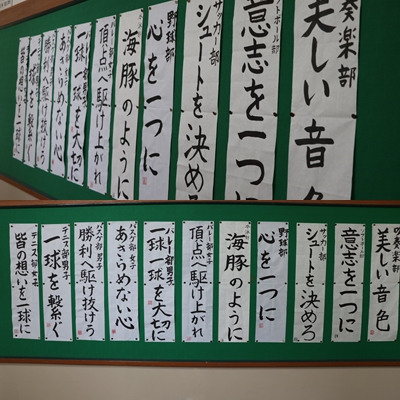 奏楽部
美しい音色
ボール部
意志を一つに
サッカー部
シュートを決めろ
野球部
心を一つに
海豚のように
頂点へ駆け上がれ
一球一球を大切に
あきらめない心
勝利へ駆け抜けろ
一球を繋ぐ
皆の想いを一球に
吹奏楽部
美しい音色
意志を一つに
サッカー部
シュートを決めろ
野球部
心を一つに
海豚のように
バレー部女子
頂点へ駆け上がれ
バレー部男子
一球一球を大切に
バスケ部女子
あきらめない心
バスケ部男子
勝利へ駆け抜けろ
テニス部男子
一球を繋ぐ
テニス部女子
皆の想いを一球に